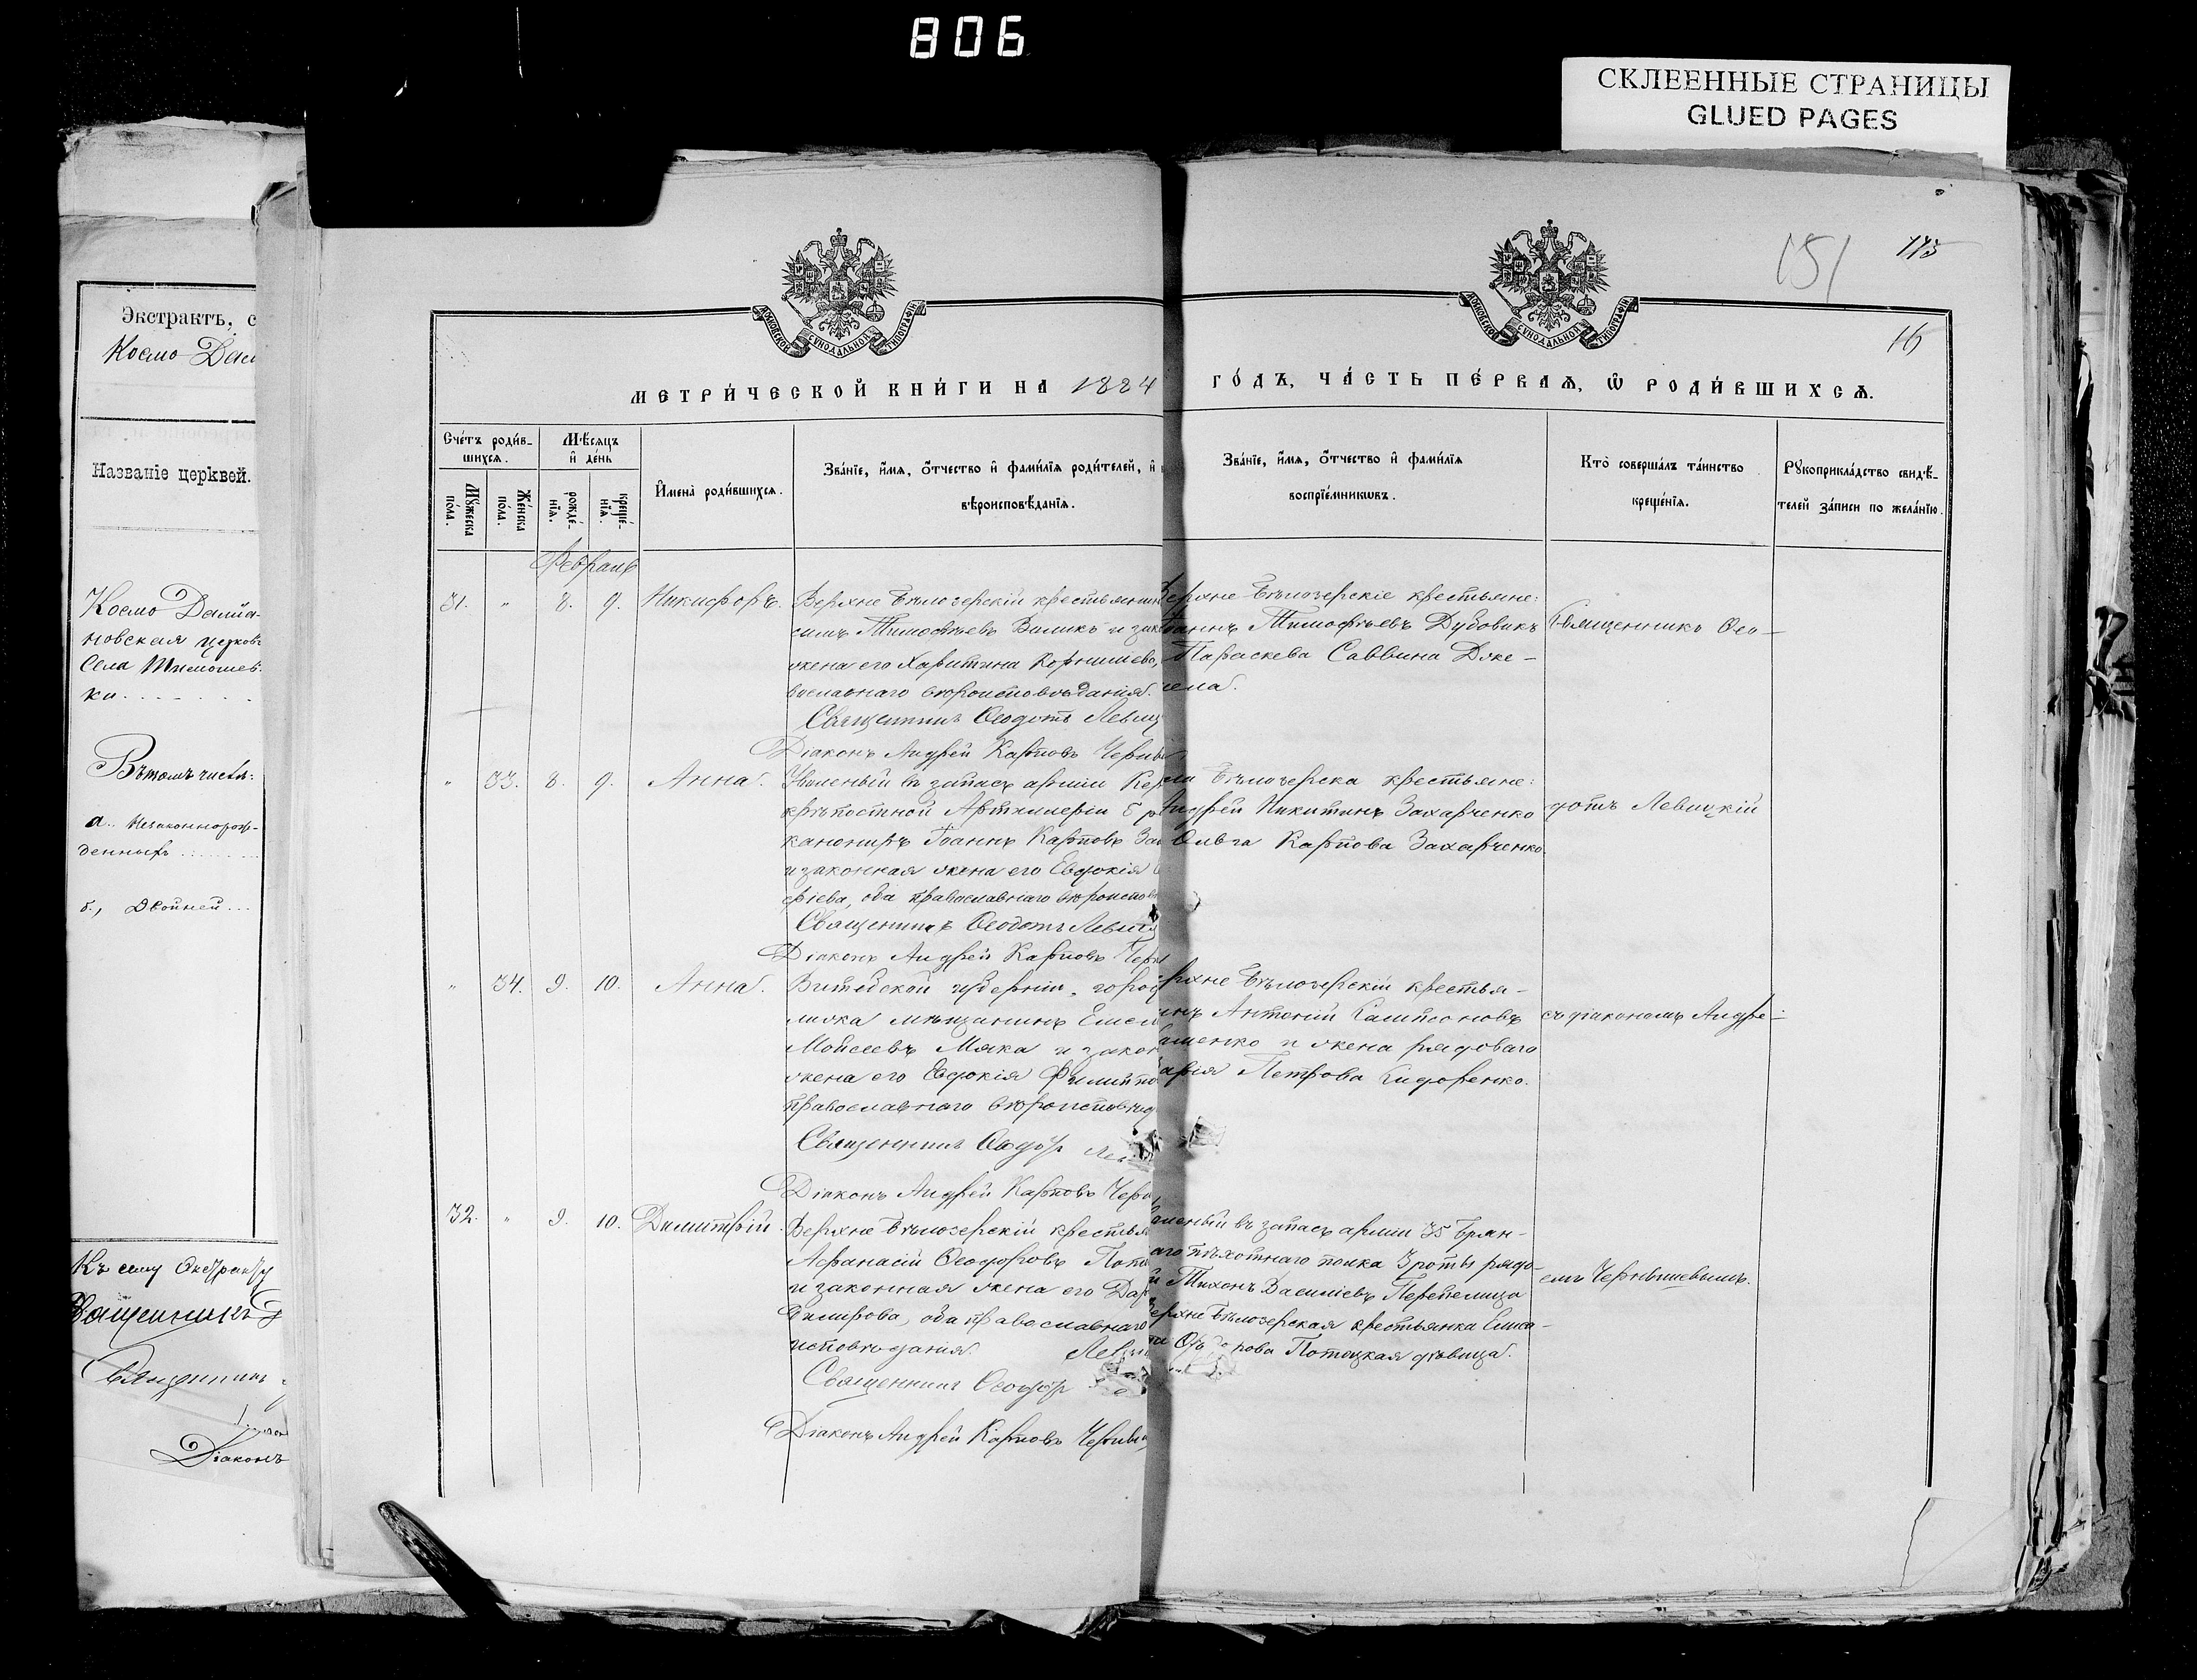 806
СКЛЕЕННЫЕ СТРАНИЦЫ
GLUED PAGES
Экстрактъ, с
Космо Дам
Названіе церквей.
Космо Даміа-
новская церковь
Села Тимошев-
ки
Въ томъ числѣ:
а. Незаконнорож-
денныхъ
б., Двойней
Къ сему Экстракту
Священникъ
Діаконъ
151
МОСКОВСКОЙ СУНОДАЛЬНОЙ ТИПОГРАФІИ
МОСКОВСКОЙ СУНОДАЛЬНОЙ ТИПОГРАФІИ
16
МЕТРИ́ЧЕСКОЙ КНИ́ГИ НА 1884 ГО́ДЪ, ЧА́СТЬ ПЕ́РВАѦ, Ѡ҆ РОДИ́ВШИХСѦ.
Сче́тъ роди́в-
шихсѧ.
Мѣ́сѧцъ
и҆ де́нь
Мꙋ́жеска по́ла.
Же́нска по́ла.
рожде́-
нїѧ.
креще́-
нїѧ.
И҆мена̀ роди́вшихсѧ.
Зва́нїе, и҆́мѧ, ѻ҆́тчество и҆ фами́лїѧ роди́телей, и҆
вѣроисповѣ́данїѧ.
Зва́нїе, и҆́мѧ, ѻ҆́тчество и҆ фами́лїѧ
воспрїе́мникѡвъ.
Кто̀ соверша́лъ та́инство
креще́нїѧ.
Рꙋкоприкла́дство свидѣ́-
телей за́писи по жела́нїю.
Февраль
31. " 8. 9. Никифоръ.
Верхне Бѣлозерскій крестьянин
симъ Тимофѣевъ Волик и зак
жена его Харитина Корнилиева,
вославнаго вѣроисповѣданія.
Священникъ Ѳеодотъ Левиц
Діаконъ Андрей Карповъ Черны
ерхне Бѣлозерскіе крестьяне:
Іоаннъ Тимофѣевъ Дубовикъ
Параскева Саввина Дже-
Священникъ Ѳео-
" 33. 8. 9. Анна.
Уволеный въ запасъ арміи Кер
крѣпостной Артиллеріи 5 р
канониръ Іоаннъ Карповъ За
и законная жена его Евдокія
фіева, оба православнаго вѣроиспов
Священникъ Ѳеодотъ Левиц
Діаконъ Андрей Карповъ Черн
ла Бѣлозерска крестьяне:
Андрей Никитинъ Захарченко
Ольга Карпова Захарченко.
дотъ Левицкій
" 34. 9. 10. Анна.
Витебской губерніи, горо
мѣщанинъ Емел
Мойсеевъ Мяка и закон
жена его Евдокія Филиппо
православнаго вѣроисповѣд
Священникъ Ѳеодор Лев
Діаконъ Андрей Карповъ Черн
рхне Бѣлозерскій крестья-
инъ Антоній Сампсоновъ
ашенко и жена рядоваго
арія Петрова Сидоренко.
съ діакономъ Андре-
32. " 9. 10. Димитрій.
Верхне Бѣлозерскій крестья
Афанасій Ѳеодоровъ Пото
и законная жена его Дар
димірова, оба православнаго
исповѣданія.
Священникъ Ѳеодор
Діаконъ Андрей Карповъ Черны
оленый въ запасъ арміи 35 Брян-
аго пѣхотнаго полка 3 роты рядо-
й Тихонъ Василіевъ Перепелица
Верхне Бѣлозерская крестьянка Елиса-
Потоцкая дѣвица.
емъ Чернышевымъ.